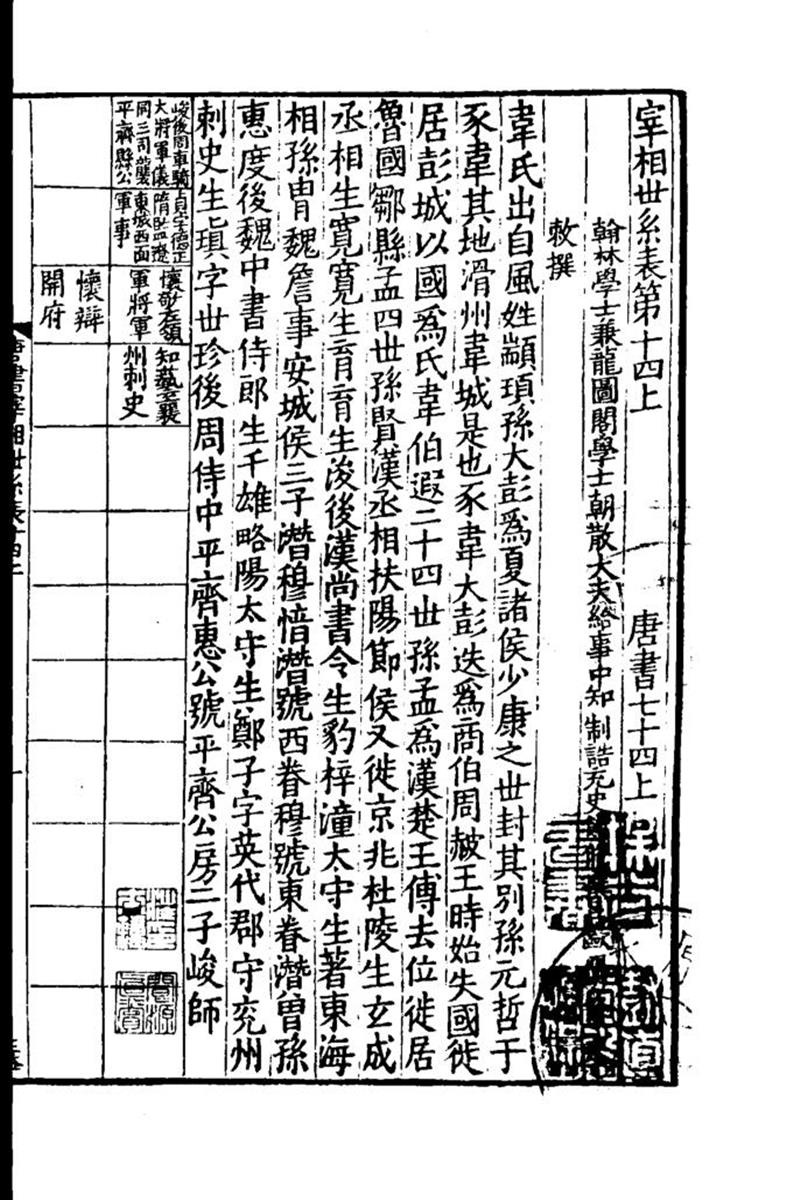 宰相世系表第十四上　唐書七十四上
翰林學士兼龍圖閣學士朝散大夫給事中知制誥充史
敕撰
韋氏出自風姓顓頊孫大彭爲夏諸侯少康之世封其別孫元哲于
豕韋其地滑州韋城是也豕韋大彭迭爲商伯周赧王時始失國徙
居彭城以國爲氏韋伯遐二十四世孫孟爲漢楚王傅去位徙居
魯國鄒縣孟四世孫賢漢丞相扶陽節侯又徙京兆杜陵生玄成
丞相生寬寬生育育生浚後漢尚書令生豹梓潼太守生著東海
相孫胄魏詹事安城侯三子潛穆愔潛號西眷穆號東眷潛曾孫
惠度後魏中書侍郎生千雄略陽太守生鄭子字英代郡守兖州
刺史生瑱字世珍後周侍中平齊惠公號平齊公房二子峻師
峻後周車騎
大將軍儀
同三司襲
平齊縣公
貞字德正
隋監遼
東城西面
軍事
懷敬左領
軍將軍
知藝襄
州刺史
懷辯
開府
唐書宰相世系表十四上